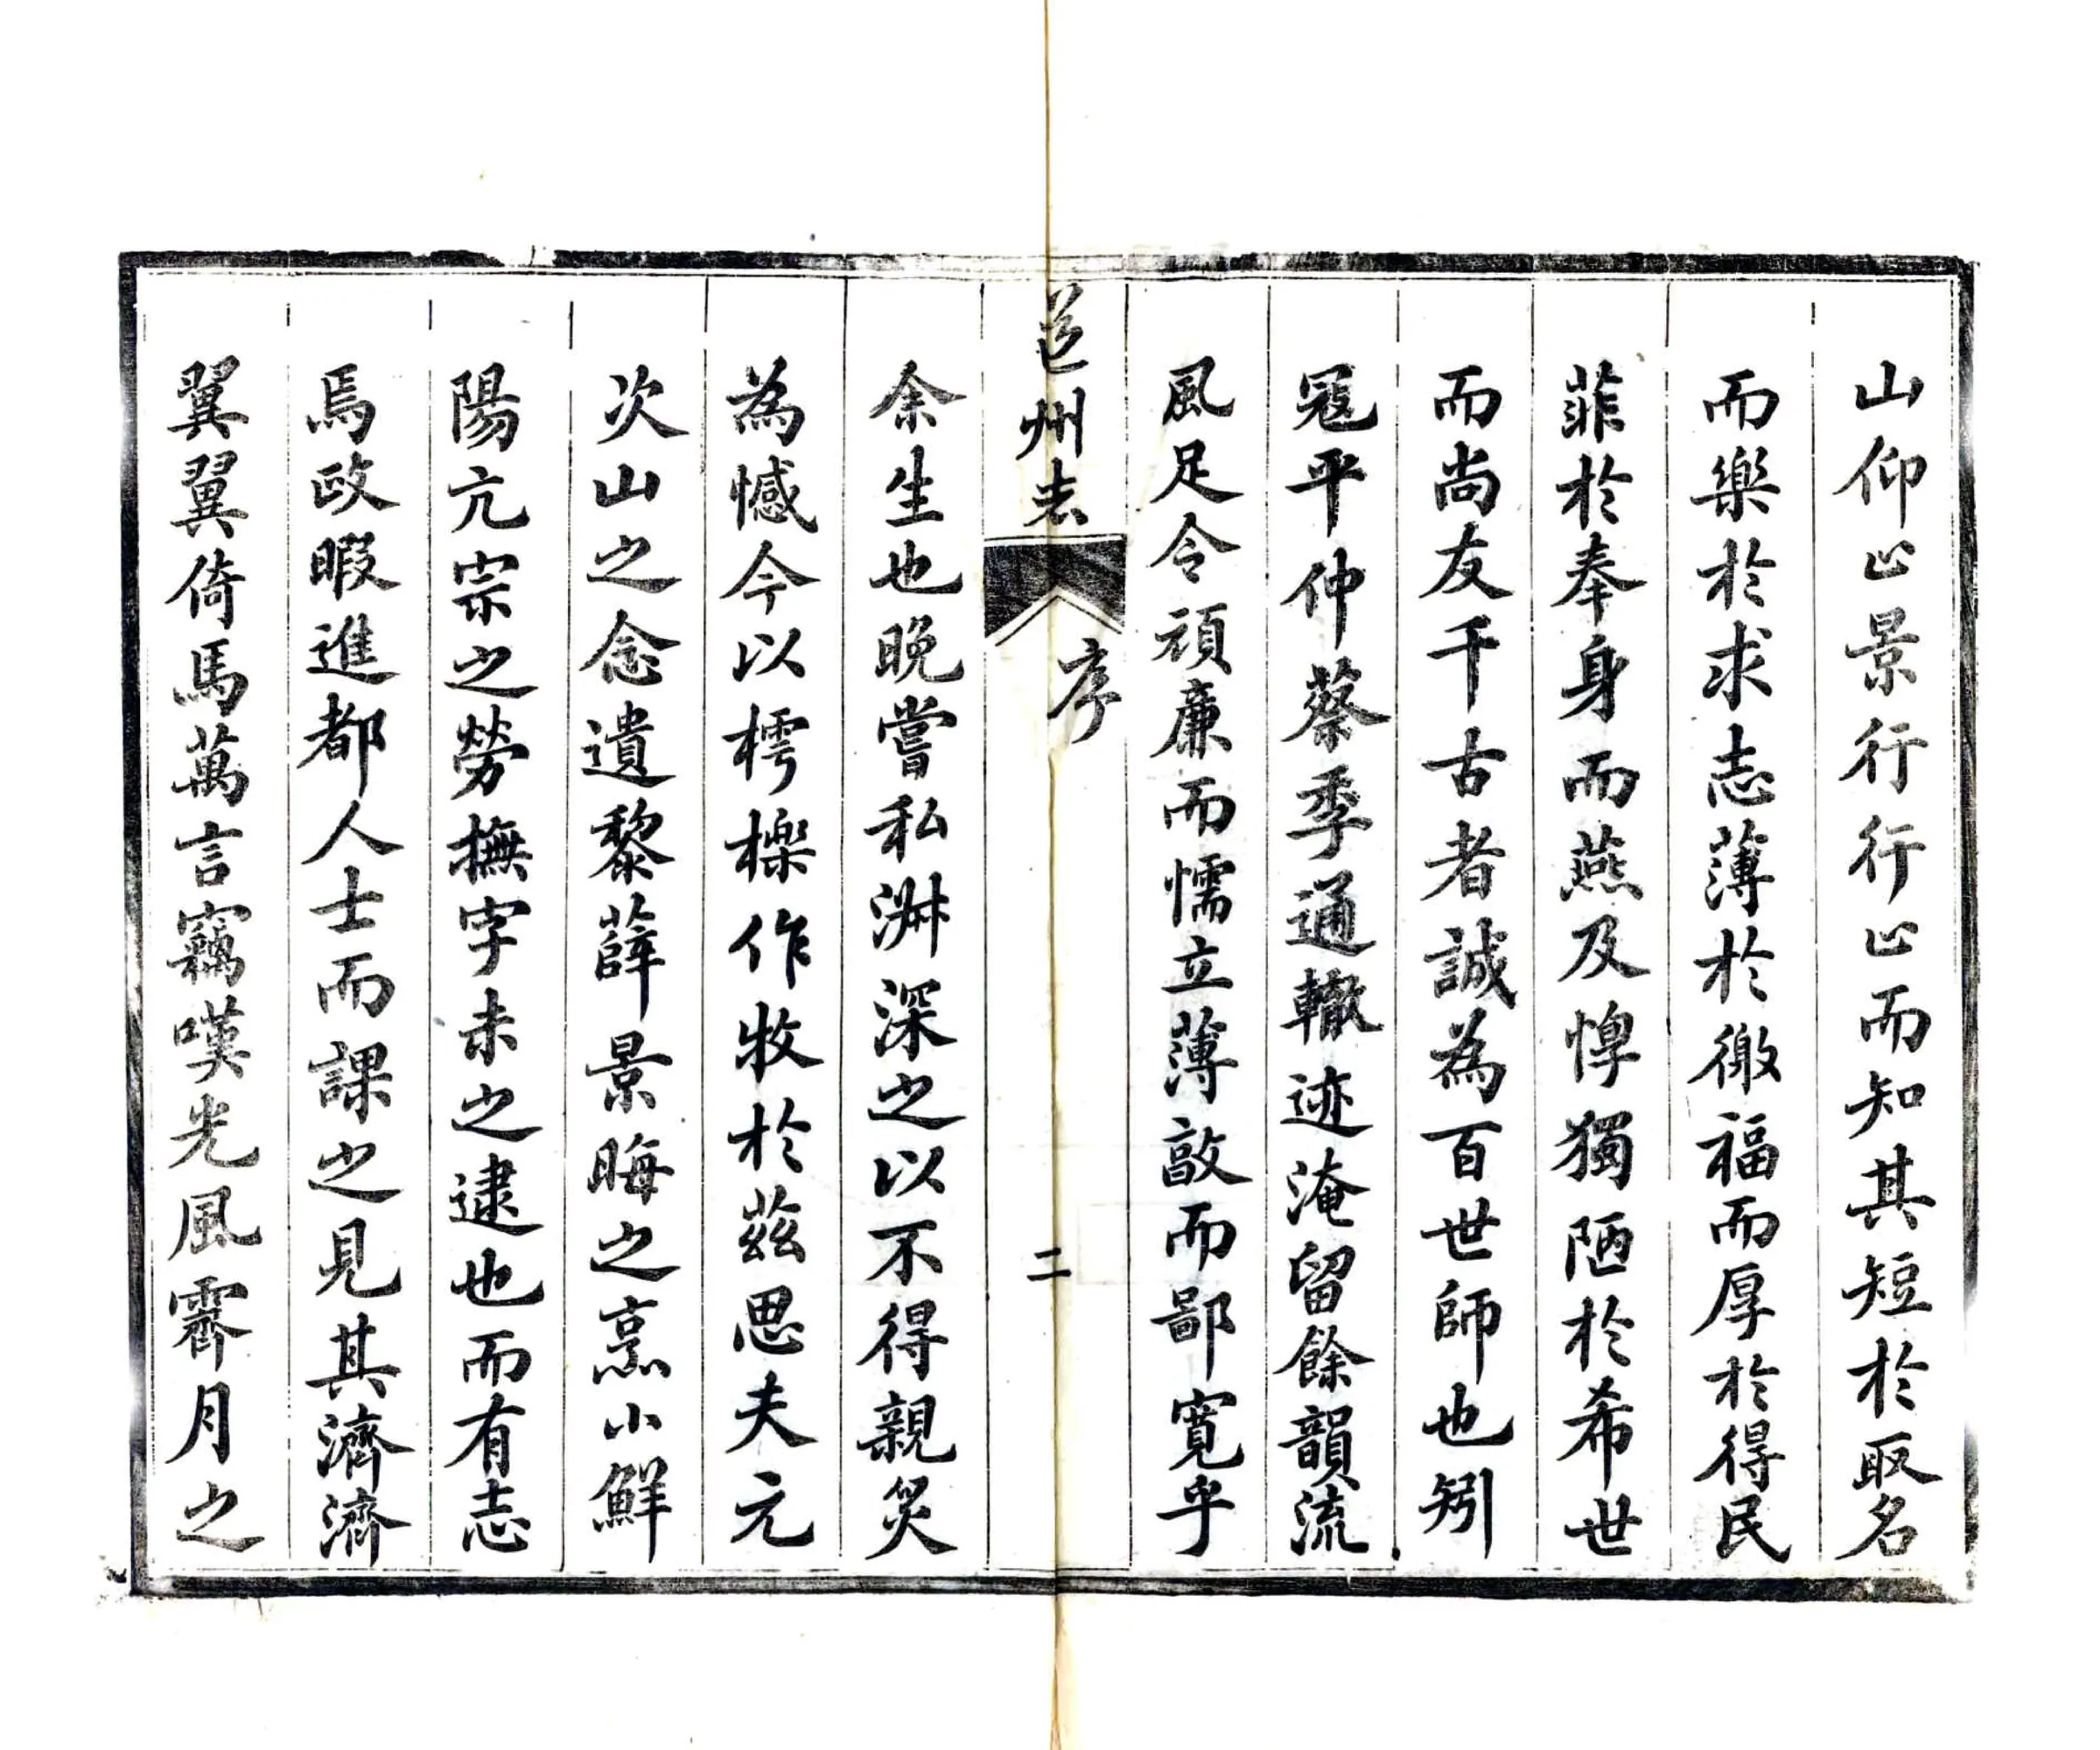 山仰止景行行止而知其短於取名
而樂於求志薄於徼福而厚於得民
菲於奉身而燕及惸獨陋於希世
而尚友千古者誠為百世師也矧
寇平仲蔡季通轍迹淹留餘韻流
風足令頑廉而懦立薄敦而鄙寬乎
道州志
序
二
余生也晚嘗私淑深之以不得親炙
為憾今以樗櫟作牧於茲思夫元
次山之念遺黎薛景晦之烹小鮮
陽亢宗之勞撫字未之逮也而有志
焉政暇進都人士而課之見其濟濟
翼翼倚馬萬言竊嘆光風霽月之